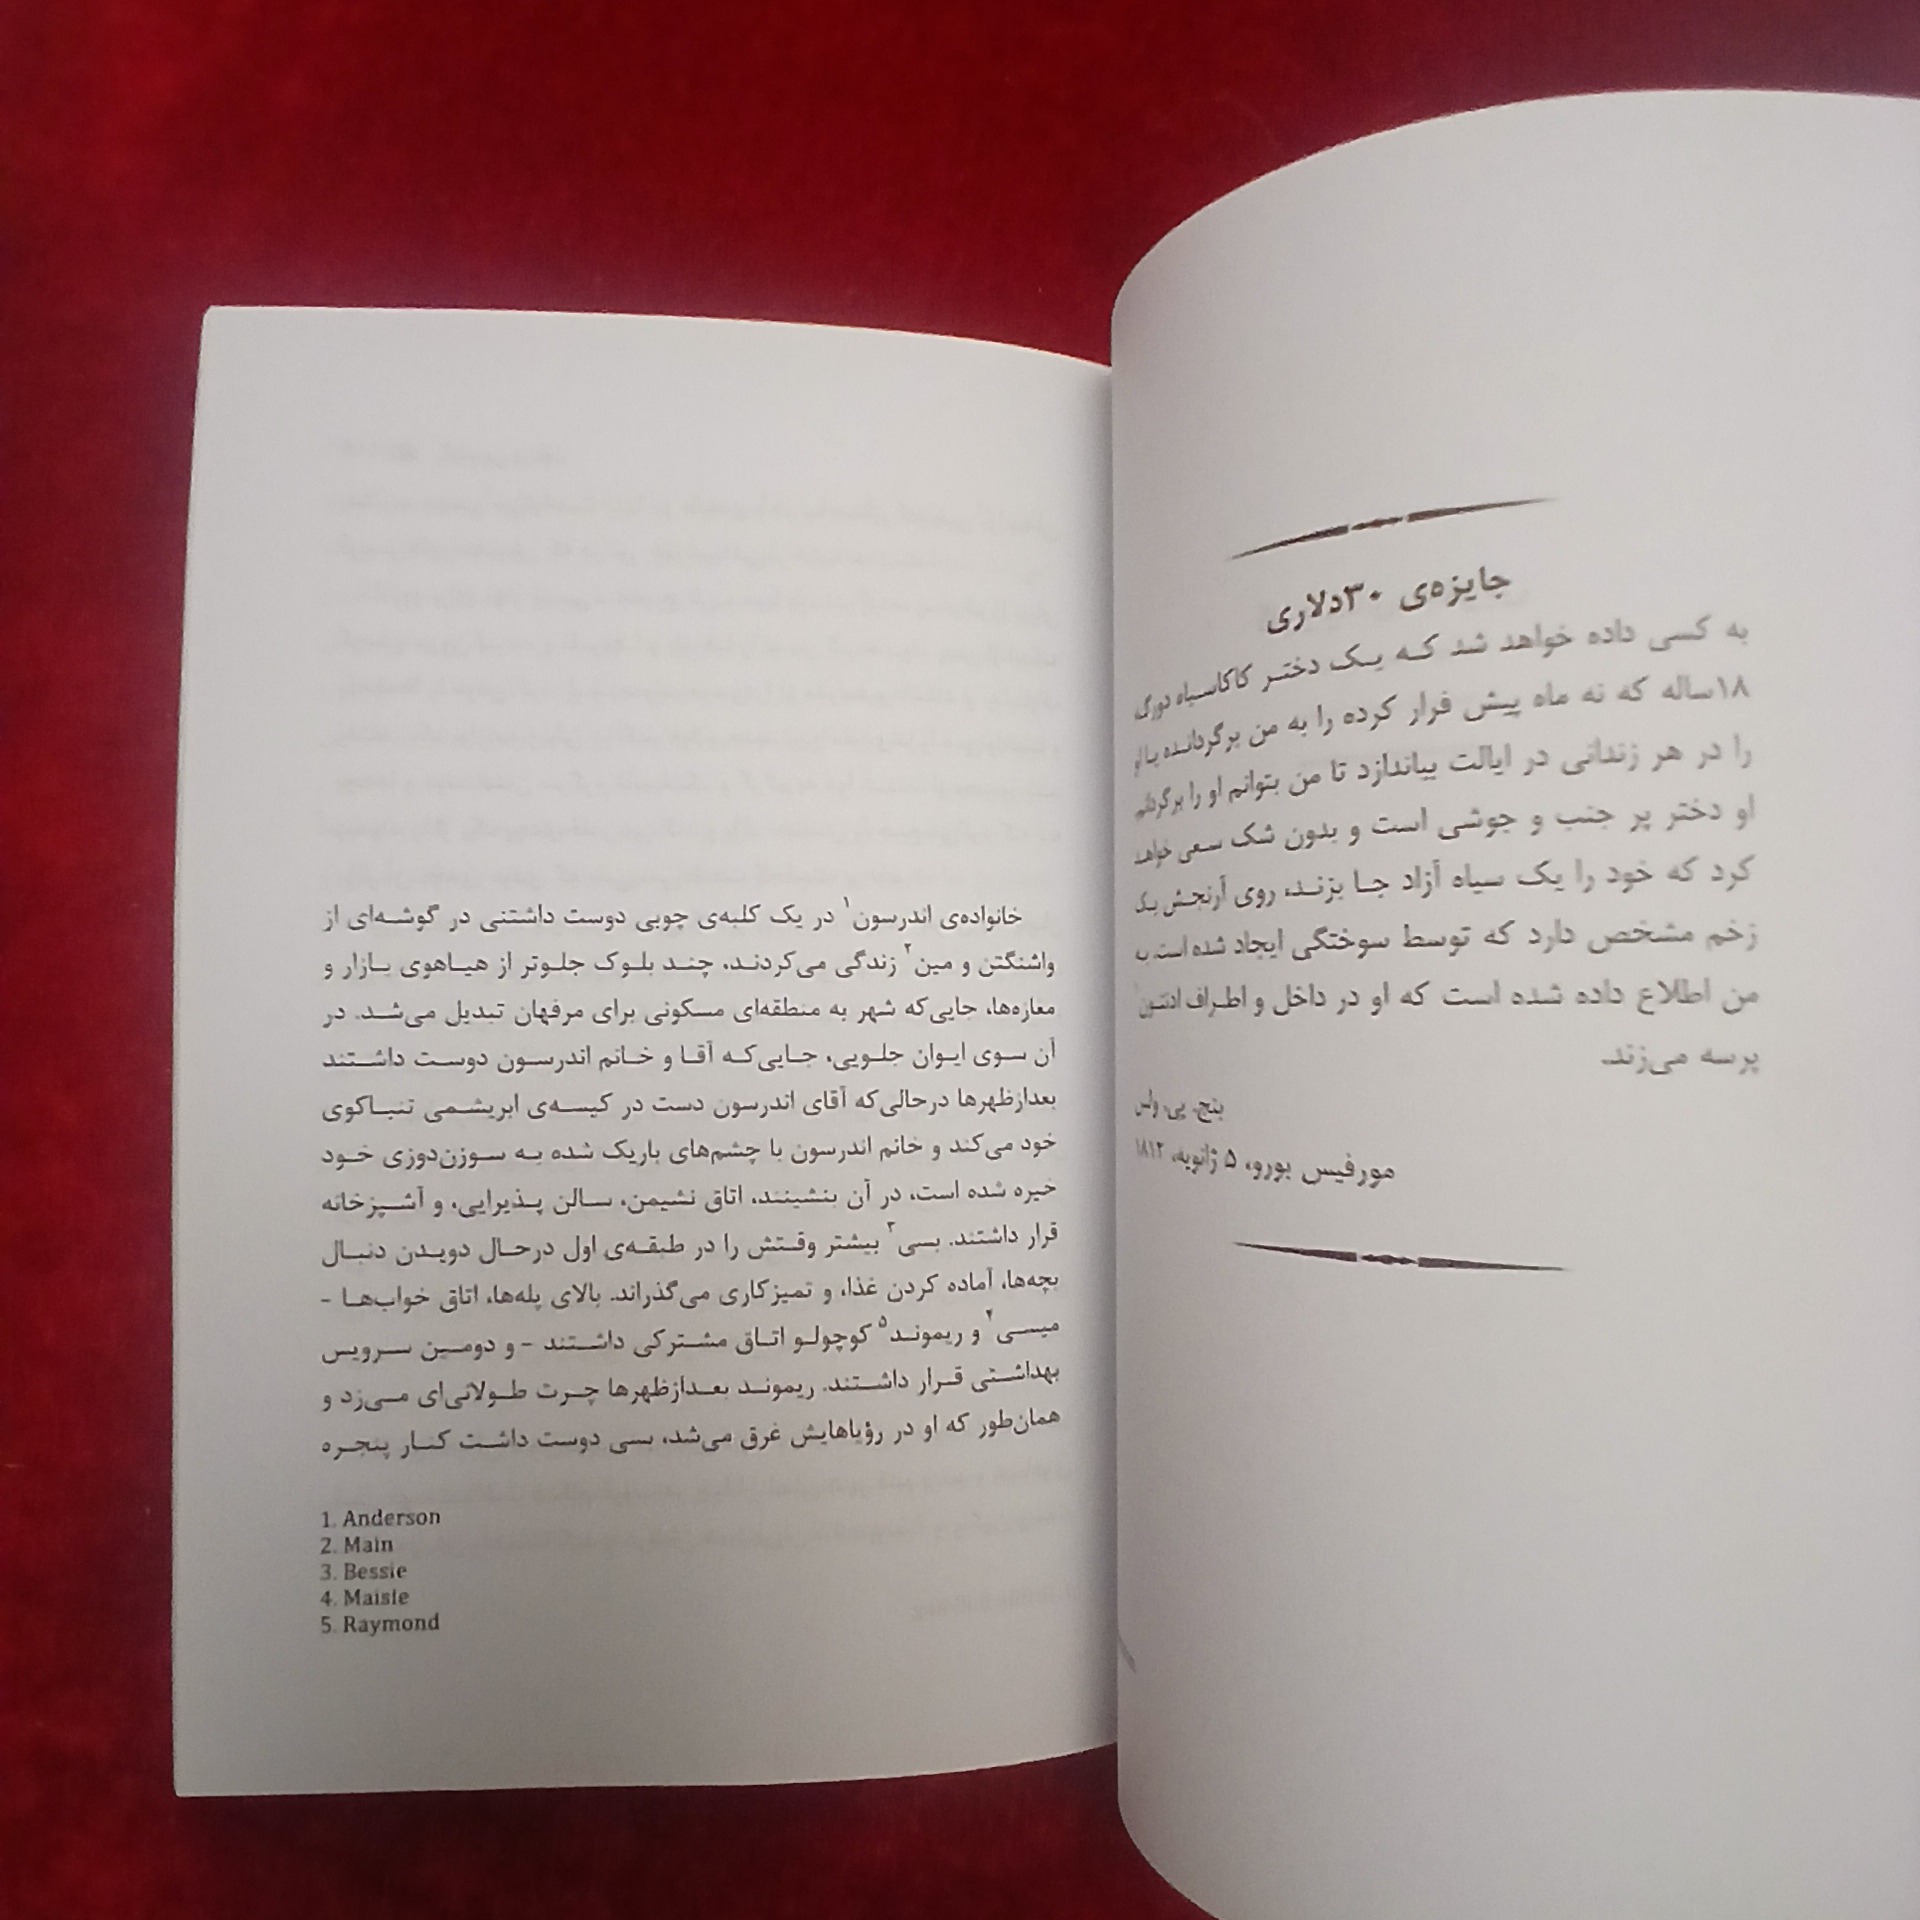 جایزه‌ی ۳۰دلاری
به کسی داده خواهد شد که یک دختر کاکاسیاه دورگه
۱۸ساله که نه ماه پیش فرار کرده را به من برگردانده یا او
را در هر زندانی در ایالت بیاندازد تا من بتوانم او را برگردانم.
او دختر پر جنب و جوشی است و بدون شک سعی خواهد
کرد که خود را یک سیاه آزاد جا بزند، روی آرنجش یک
زخم مشخص دارد که توسط سوختگی ایجاد شده است. به
من اطلاع داده شده است که او در داخل و اطراف ادنتون
پرسه می‌زند.
بنج. پی. ولس
مورفیس بورو، ۵ ژانویه، ۱۸۱۲
خانواده‌ی اندرسون۱ در یک کلبه‌ی چوبی دوست داشتنی در گوشه‌ای از
واشنگتن و مین۲ زندگی می‌کردند، چند بلوک جلوتر از هیاهوی بازار و
مغازه‌ها، جایی‌که شهر به منطقه‌ای مسکونی برای مرفهان تبدیل می‌شد. در
آن سوی ایوان جلویی، جایی‌که آقا و خانم اندرسون دوست داشتند
بعدازظهرها درحالی‌که آقای اندرسون دست در کیسه‌ی ابریشمی تنباکوی
خود می‌کند و خانم اندرسون با چشم‌های باریک شده به سوزن‌دوزی خود
خیره شده است، در آن بنشینند، اتاق نشیمن، سالن پذیرایی، و آشپزخانه
قرار داشتند. بسی۳ بیشتر وقتش را در طبقه‌ی اول درحال دویدن دنبال
بچه‌ها، آماده کردن غذا، و تمیزکاری می‌گذراند. بالای پله‌ها، اتاق خواب‌ها -
میسی۴ و ریموند۵ کوچولو اتاق مشترکی داشتند - و دومین سرویس
بهداشتی قرار داشتند. ریموند بعدازظهرها چرت طولانی‌ای می‌زد و
همان‌طور که او در رؤیاهایش غرق می‌شد، بسی دوست داشت کنار پنجره
1. Anderson
2. Main
3. Bessie
4. Maisie
5. Raymond